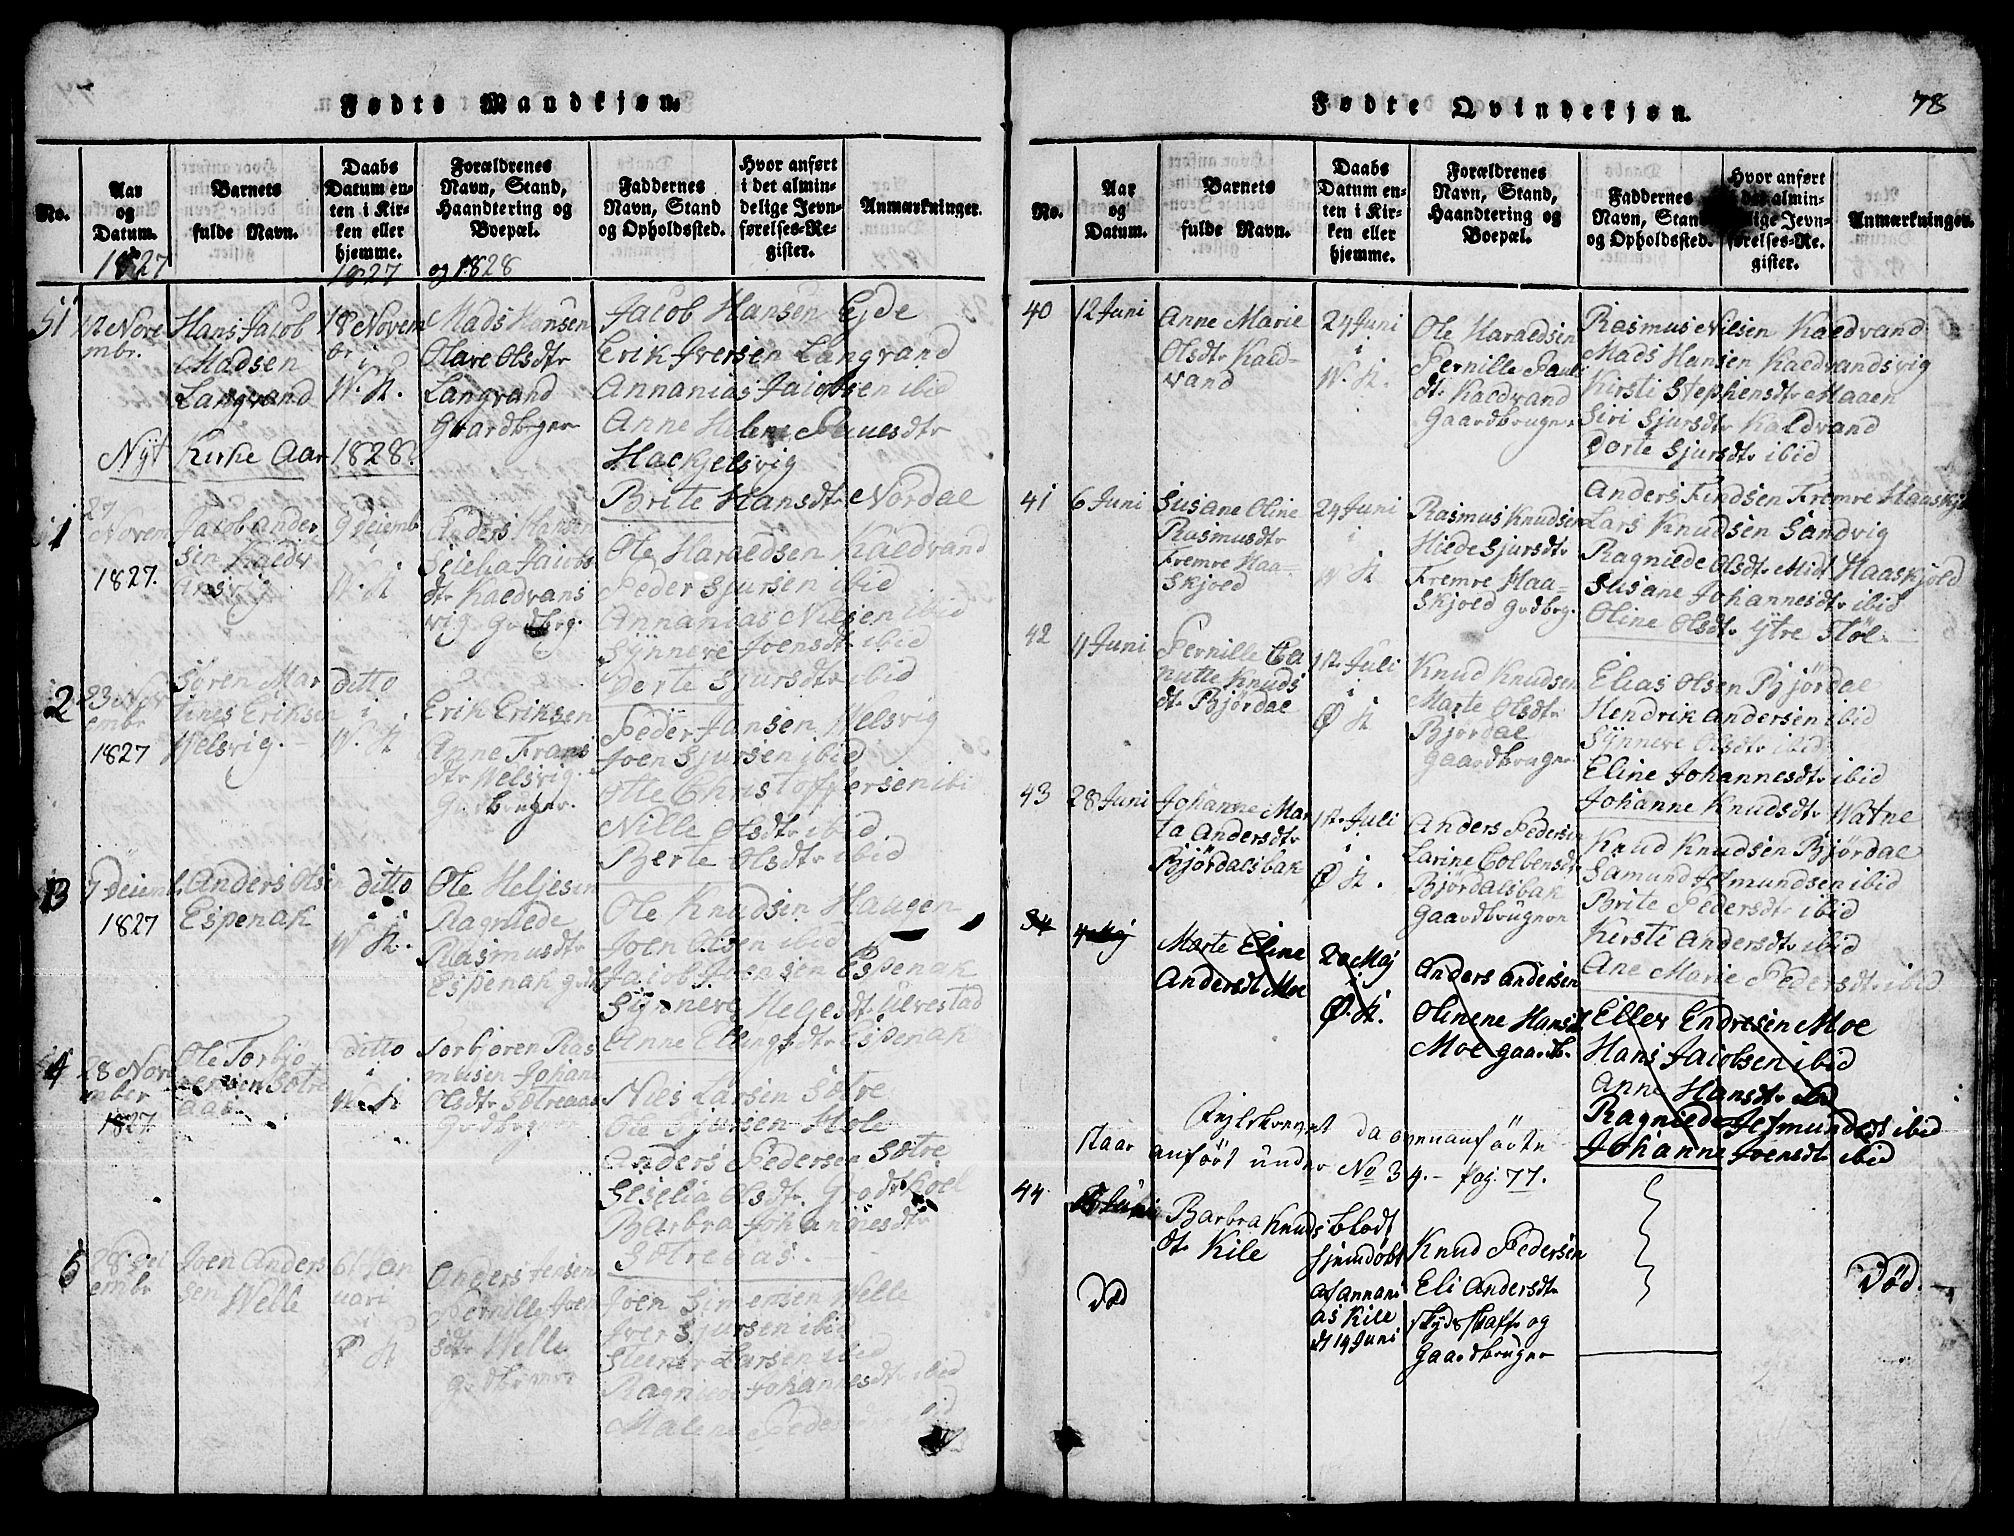 Fødte Mandkjøn.
No.
Aar
og
Datum.
Barnets
fulde Navn.
Daabs
Datum en-
ten i Kir-
ken eller
hjemme.
Forældrenes
Navn, Stand,
Haandtering og
Boepæl.
Faddernes
Navn, Stand
og Opholdssted.
Hvor anført
i det almin-
delige Jevn-
førelses-Re-
gister.
Anmærkninger.
1827
1827 og 1828
51
12 Nove
mbr.
Hans Jacob
Madsen
Langvand
18 Novem
br i
W. K.
Mads Hansen
Olave Olsdtr
Langvand
Gaardbrger
Jacob Hansen Ejde
Erik Iversen Langvand
Annanias Jacobsen ibid
Anne Helene Pauesdtr
Hackjelsvig
Brite Hansdtr Nordal
Nÿt Kirke Aar 1828
1
27
Novem
1827.
Jacob Ander
sen Kaldv
ansvig
9 Deiemb
i
W. K
Anders Hansen
Seielia Jacobs
dtr Kaldvans
vig Grdbrg.
Ole Haraldsen Kaldvand
Peder Sjursen ibid
Annanias Nilsen ibid
Sÿnneve Joensdtr ibid
Berte Sjursdtr ibid
2
23 Nov
embr
1827
Søren Mar
tines Eriksen
Welsvig.
ditto
i
W. K
Erik Eriksen
Anne Frans
dtr Welsvig.
Grdbruger.
Peder Jansen Welsvig
Joen Sjursen ibid
Otte Christoffersen ibid
Nille Olsdtr ibid.
Berte Olsdtr ibid
3
9 Deiemb
1827
Anders Olsen
Espenak
ditto
i
W. K.
Ole Heljesen
Ragnilde
Rasmusdtr
Espenak
Ole Knudsen Haugen
Joen Olsen ibid
Jacob Joensen Espenak
Sÿnneve Heljedtr Ulvestad
Anne Ellingsdtr Espenak
4
28 Nov
ember
1827.
Ole Torbjø
rensen Sætre
aas
ditto
i
W. K
Torbjøren Ras
musen Johan
Olsdtr Sætreaas
Grdbruger
Nils Larsen Sætre
Ole Sjursen Hole
Anders Pedersen Sætre
Seselia Olsdtr
Barbra Johannesdtr
Sætreaas.
5
28 Dei
embr
Joen Anders
sen Welle
6 Jan
uari
i
Ø K
Anders Jensen
Pernille Joen
sdtr Welle
Grdbruger
Joen Simensen Welle
Iver Sjursen ibid
Steener Larsen ibid
Ragnilde Johannesdtr ibid
Malene Pedersdtr ibid
Fødte Qvindekjøn.
78
No.
Aar
og
Datum.
Barnets
fulde Navn.
Daabs
Datum en-
ten i Kir-
ken eller
hjemme.
Forældrenes
Navn, Stand,
Haandtering og
Boepæl.
Faddernes
Navn, Stand
og Opholdssted.
Hvor anført
i det almin-
delige Jevn-
førelses-Re-
gister.
Anmærkninger.
40
12 Juni
Anne Marie
Olsdtr Kald-
vand
24 Juni
i
W. K.
Ole Haraldsen
Pernille Paul
dtr Kaldvand
Gaardbruger
Rasmus Nilsen Kaldvand
Mads Hansen Kaldvandsvig
Kirsti Stephensdtr Maaen
Siri Sjursdtr Kaldvand
Dorte Sjursdtr ibid
41
6 Juni
Susane Oline
Rasmusdtr
Fremre Haa=
skjold
24 Juni
i
W K
Rasmus Knudsen
Hilde Sjursdtr
Fremre Haa=
skjold Grdbrg.
Anders Findsen Fremre Haaskjo
Lars Knudsen Sandvig
Ragnilde Olsdtr Midt Haaskjold
Susane Johannesdtr ibid
Oline Olsdtr Ytre Støl.
42
11 Juni
Pernille Ca
nutte Knuds
dtr Bjørdal
1ste Juli
i
Ø K
Knud Knudsen
Marte Olsdtr
Bjørdal
Gaardbruger
Elias Olsen Bjørdal
Hendrik Andersen ibid
Sÿnneve Olsdtr ibid
Eline Johannesdtr ibid
Johanne Knudsdtr Watne
43
28 Juni
Johanne Mar
ta Andersdtr
Bjørdalsbak
1ste Juli
i
Ø K.
Anders Pedersen
Larine Colbensdtr
Bjørdalsbak
Gaardbrugere
Knud Knudsen Bjørdal
Samund Asmundsen ibid
Brite Pedersdtr ibid
Kirsti Andersdtr ibid
Ane Marie Pedersdtr ibid
34
4 Maj
Marte Eline
Andersdtr Moe
20 Maj
i
Ø. K.
Anders Andersen
Olinene Hansdtr
Moe Gaardb.
Eller Endresen Moe
Hans Jacobsen ibid
Anne Hansdtr ibid
Ragnilde Asmundsdt ibid
Johanne Joensdtr ibid
Fejlskrevet da ovenanførte
staar anført under No 34.- pag: 77.
44
Juni
Død
Barbra Knuds
dtr Kile
blodt
hjemdøbt
af Annani
as Kile
d 14 Juni
Knud Pedersen
Eli Andersdtr
Skydsskaffer og
Gaardbruger
Død.